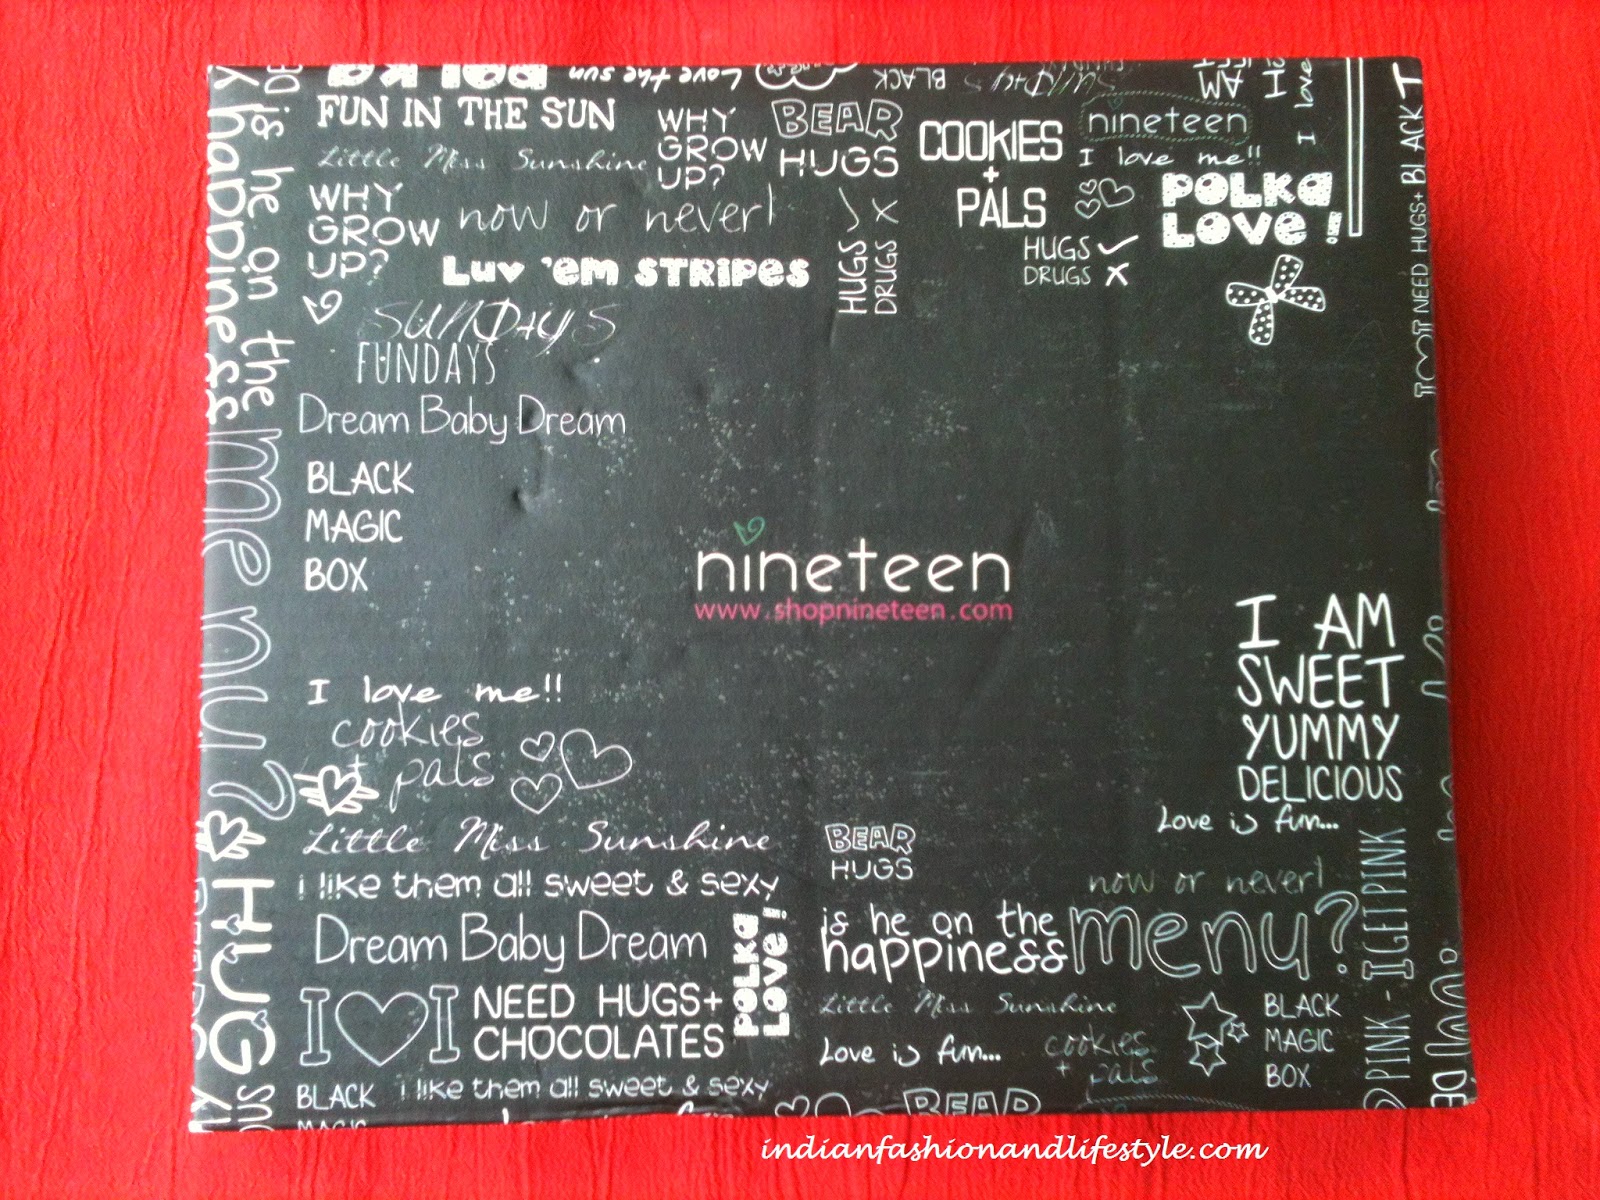 POLKA
Love the sun
BLACK
SUNDAYS
I AM
I love
FUN IN THE SUN
Little Miss Sunshine
WHY
GROW
UP?
BEAR
HUGS
COOKIES
+
PALS
nineteen
I love me!!
POLKA
LOVE!
WHY
GROW
UP?
now or never!
HUGS
DRUGS X
HUGS ✓
DRUGS X
Luv 'em STRIPES
SUNDAYS
FUNDAYS
Dream Baby Dream
BLACK
MAGIC
BOX
nineteen
www.shopnineteen.com
I love me!!
cookies
+ pals
I AM
SWEET
YUMMY
DELICIOUS
Love is fun...
Little Miss Sunshine
BEAR
HUGS
i like them all sweet & sexy
now or never!
Dream Baby Dream
POLKA
LOVE!
is he on the
happiness menu?
I ♡ I
NEED HUGS+
CHOCOLATES
Little Miss Sunshine
Love is fun...
cookies
+ pals
BLACK
MAGIC
BOX
BLACK
MAGIC
i like them all sweet & sexy
BEAR
is he on the
happiness
menu?
HUG
NEED HUGS+
BLACK
PINK - I GET PINK
indianfashionandlifestyle.com